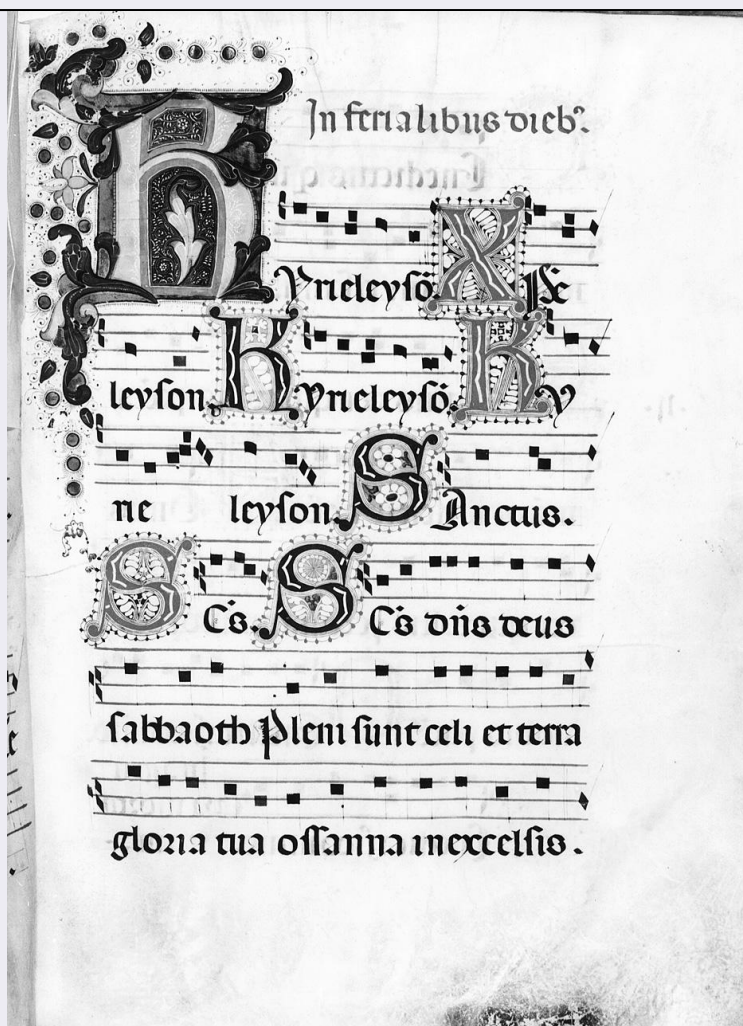 In ferialibus dieb⁹.
Kyrieleysō Xpē
leyson. Kyrieleysō. Ky
rie leyson. Sanctus.
Scs. Scs dn̄s deus
sabbaoth Pleni sunt celi et terra
gloria tua ossanna in excelsis.